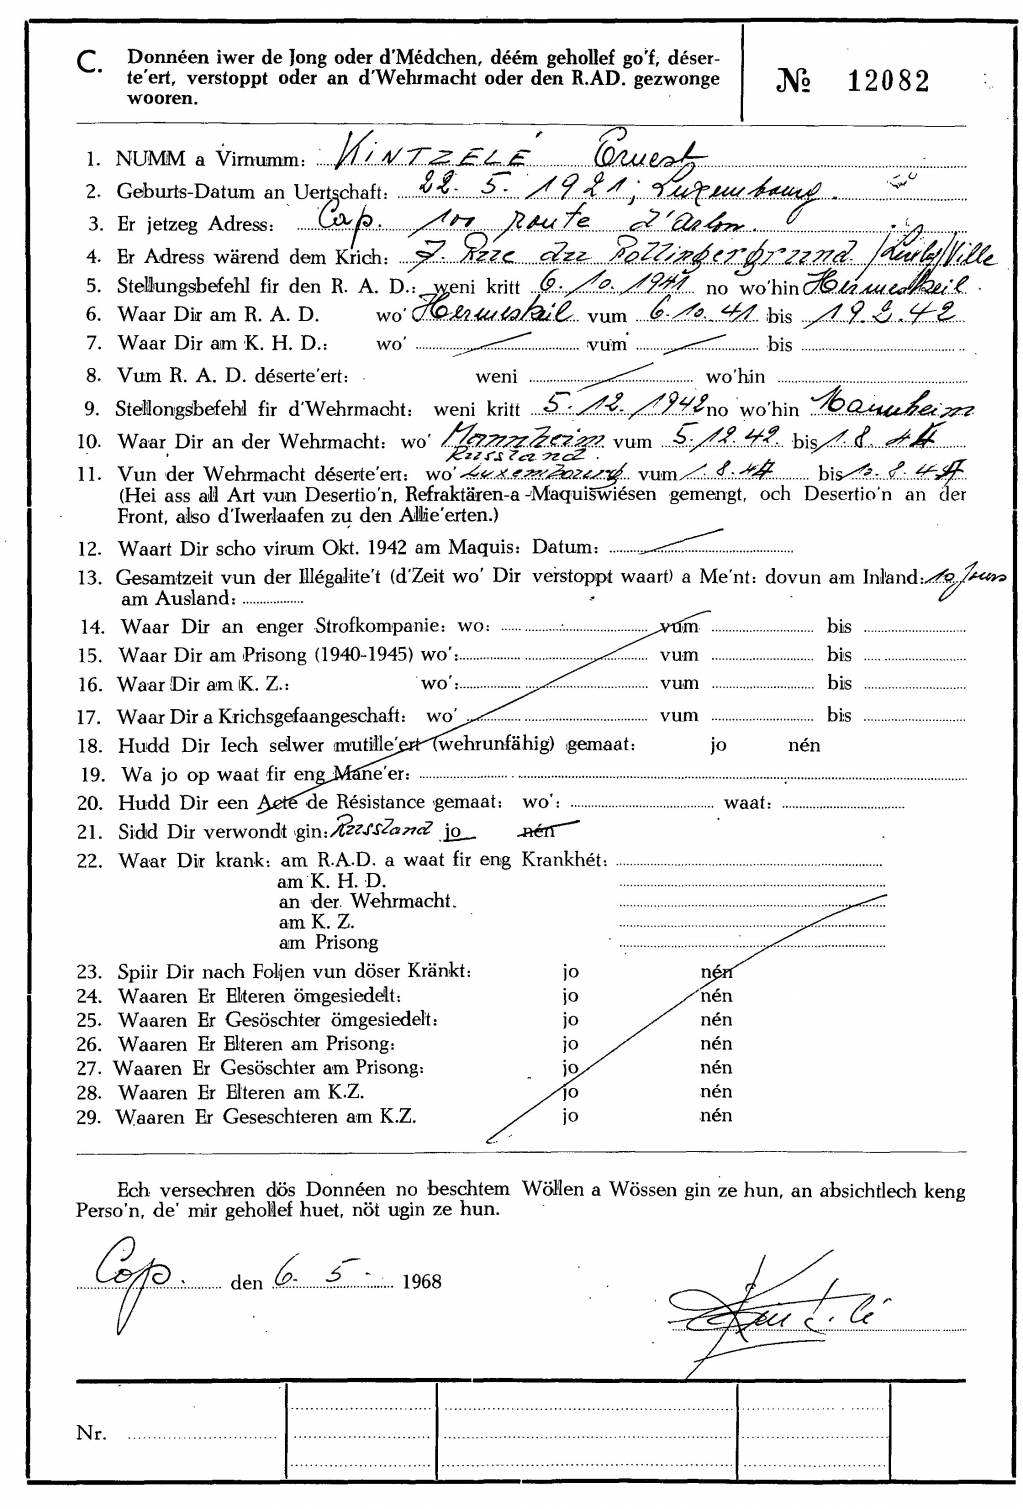 C. Donnéen iwer de Jong oder d'Médchen, déém gehollef go'f, déser-
te'ert, verstoppt oder an d'Wehrmacht oder den R.AD. gezwonge
wooren.
№ 12082
1. NUMM a Virnumm: KINTZELÉ Ernest
2. Geburts-Datum an Uertschaft: 22. 5. 1921, Luxembourg.
3. Er jetzeg Adress: Cap. 100 route d'Arlon.
4. Er Adress wärend dem Krich: 7. Rue du Rollingergrund / Luxbg / Ville
5. Stellungsbefehl fir den R. A. D.: weni kritt 6. 10. 1941 no wo'hin Hermeskeil.
6. Waar Dir am R. A. D. wo' Hermeskeil vum 6. 10. 41 bis 19. 2. 42
7. Waar Dir am K. H. D.: wo' vum bis
8. Vum R. A. D. déserte'ert: weni wo'hin
9. Stellongsbefehl fir d'Wehrmacht: weni kritt 5. 12. 1942 no wo'hin Mannheim
10. Waar Dir an der Wehrmacht: wo' Mannheim vum 5. 12. 42. bis 1. 8. 44
Russland.
11. Vun der Wehrmacht déserte'ert: wo' Luxembourg vum 1. 8. 44 bis 10. 8. 44
(Hei ass all Art vun Desertio'n, Refraktären-a -Maquiswiésen gemengt, och Desertio'n an der
Front, also d'Iwerlaafen zu den Allie'erten.)
12. Waart Dir scho virum Okt. 1942 am Maquis: Datum:
13. Gesamtzeit vun der Illégalite't (d'Zeit wo' Dir verstoppt waart) a Me'nt: dovun am Inland: 10 jours
am Ausland:
14. Waar Dir an enger Strofkompanie: wo: vum bis
15. Waar Dir am Prisong (1940-1945) wo': vum bis
16. Waar Dir am K. Z.: wo': vum bis
17. Waar Dir a Krichsgefaangeschaft: wo' vum bis
18. Hudd Dir Iech selwer mutille'ert (wehrunfähig) gemaat: jo nén
19. Wa jo op waat fir eng Mane'er:
20. Hudd Dir een Acte de Résistance gemaat: wo': waat:
21. Sidd Dir verwondt gin: Russland jo nén
22. Waar Dir krank: am R.A.D. a waat fir eng Krankhét:
am K. H. D.
an der Wehrmacht.
am K. Z.
am Prisong
23. Spiir Dir nach Foljen vun döser Kränkt: jo nén
24. Waaren Er Elteren ömgesiedelt: jo nén
25. Waaren Er Gesöschter ömgesiedelt: jo nén
26. Waaren Er Elteren am Prisong: jo nén
27. Waaren Er Gesöschter am Prisong: jo nén
28. Waaren Er Elteren am K.Z. jo nén
29. Waaren Er Geseschteren am K.Z. jo nén
Ech versechren dös Donnéen no beschtem Wöllen a Wössen gin ze hun, an absichtlech keng
Perso'n, de' mir gehollef huet, nöt ugin ze hun.
Cap. den 6. 5. 1968
Kintzelé
Nr.